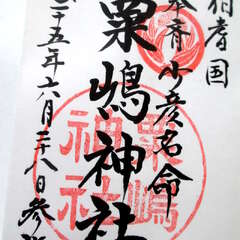 伯耆国
奉斉少彦名命
粟嶋神社
二十五年六月二十八日参拝
粟嶋
神社